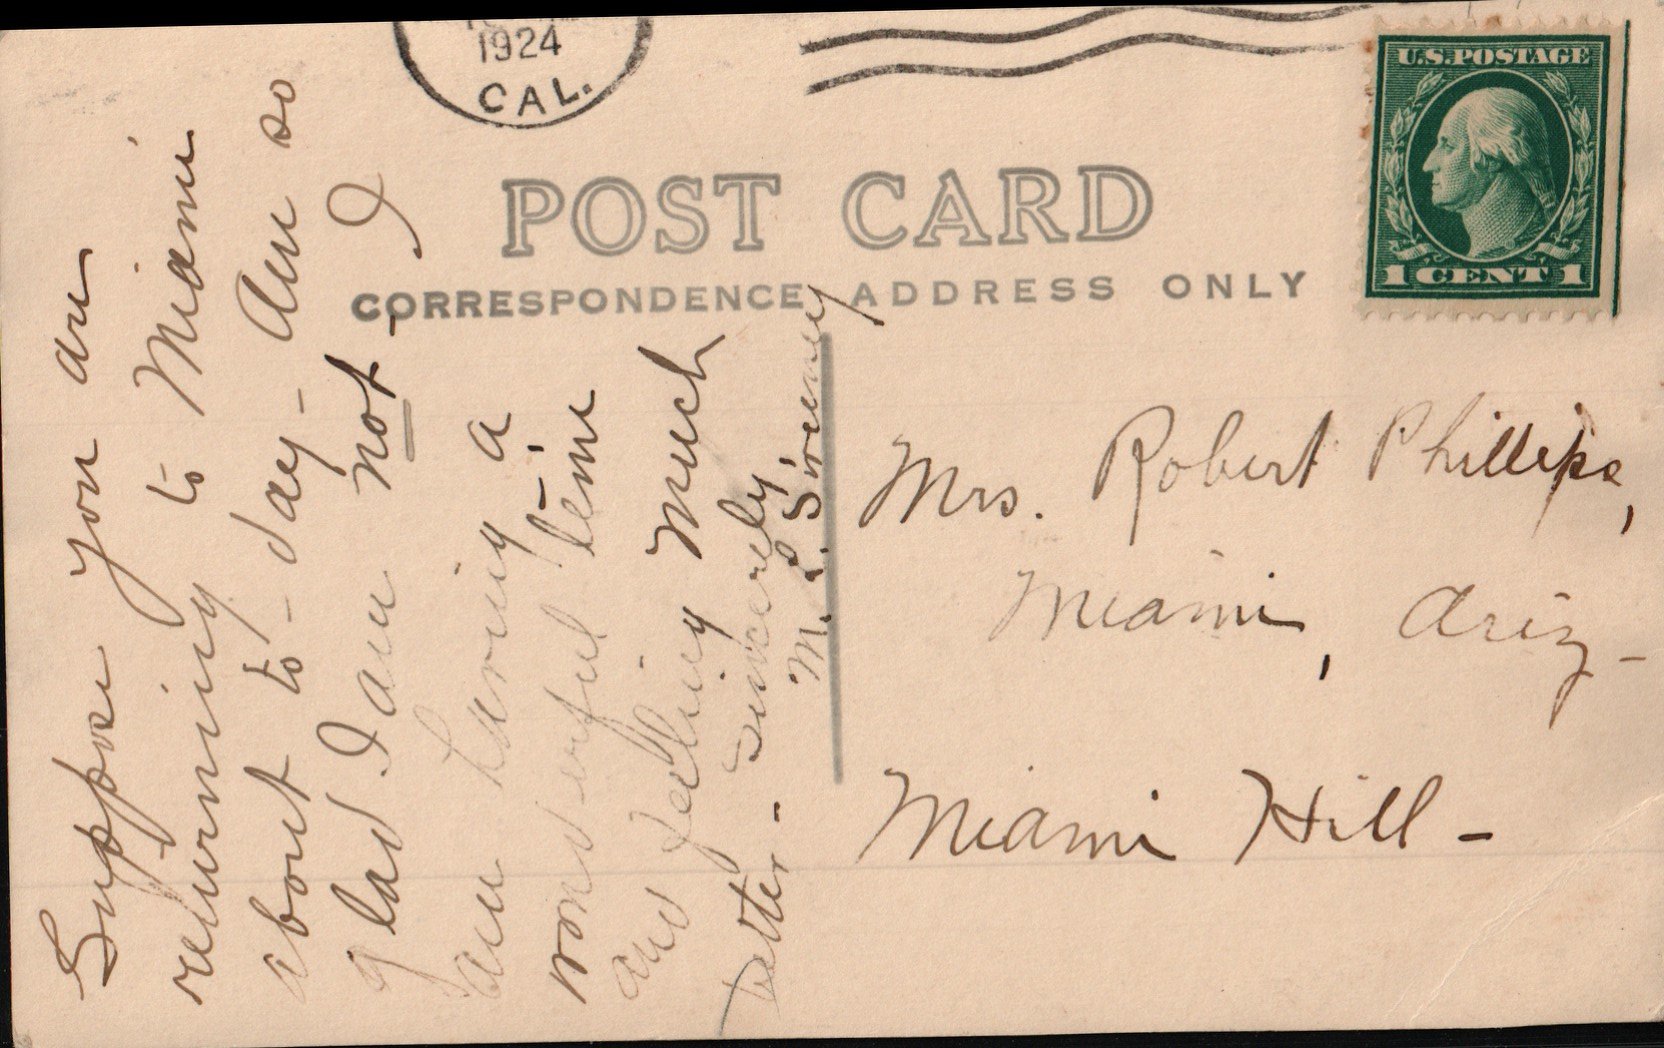 1924
CAL.
U.S. POSTAGE
1 CENT 1
POST CARD
CORRESPONDENCE ADDRESS ONLY
Suppose you are
returning to Miami
about to-day- Am so
glad I am not - I
am having a
wonderful time
and feeling much
better - sincerely,
M. L. Sweeney
Mrs. Robert Phillips,
Miami, Ariz-
Miami Hill-